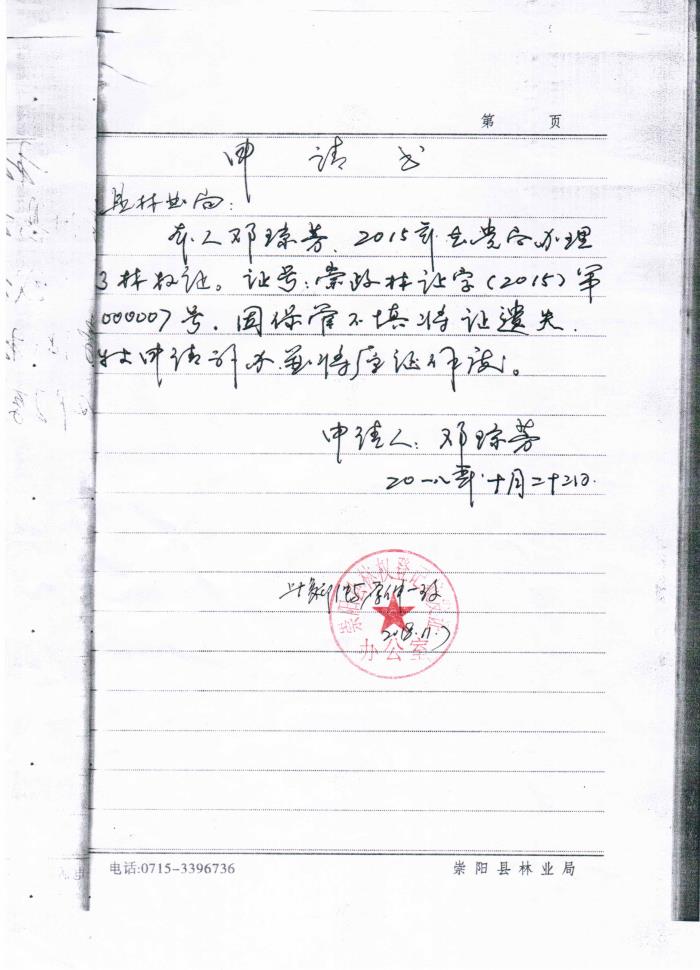 第 页
申请书
县林业局:
本人邓琼芳,2015年在贵局办理
了林权证。证号:崇政林证字(2015)第
000007号,因保管不慎将证遗失,
特申请补办并将原证作废。
申请人:邓琼芳
二〇一八年十月二十二日.
复印与原件一致
2018.11.7
崇阳县林权登记发证
办公室
电话:0715-3396736 崇阳县林业局